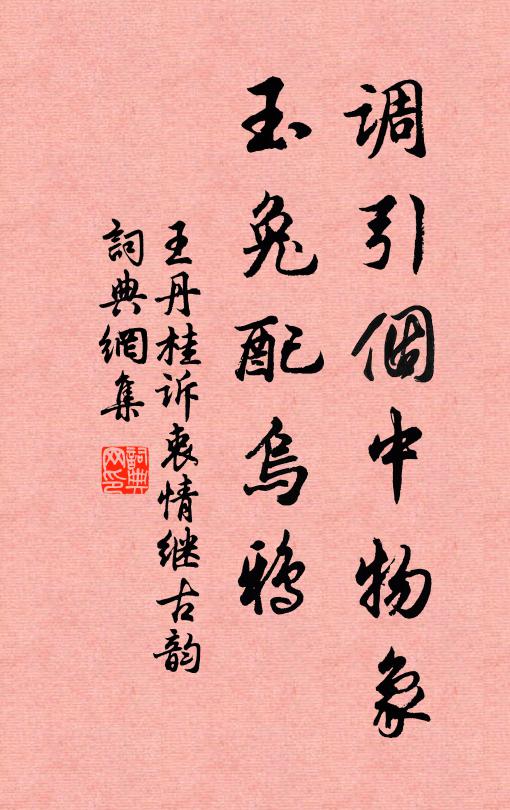 调引個中物象
玉兔配烏鴉
王丹桂诉衷情继古韵
詞典網集
詞典网印